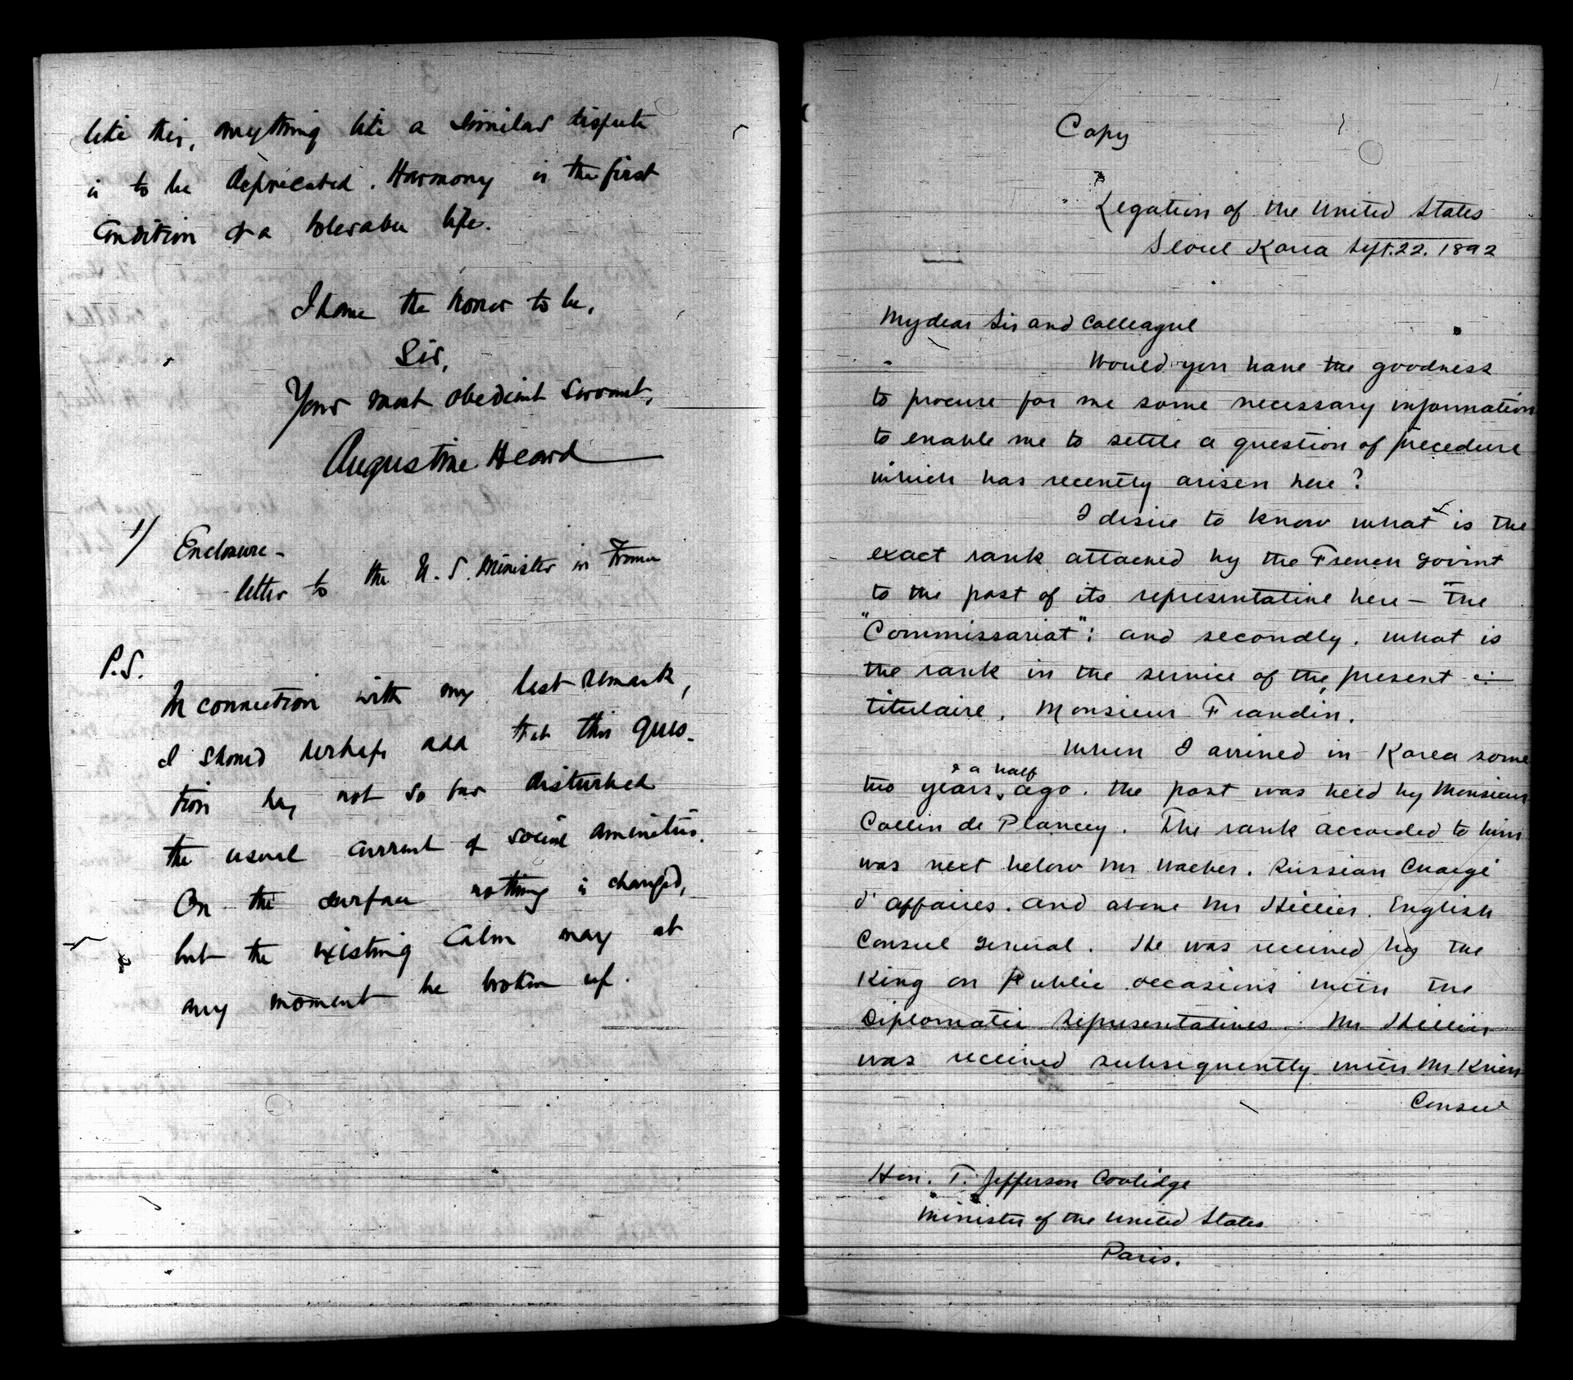 like this, anything like a similar dispute
is to be deprecated. Harmony is the first
Condition of a tolerable life.
I have the honor to be,
Sir,
Your most obedient servant,
Augustine Heard
1/ Enclosure -
letter to the U. S. Minister in France
P.S.
In connection with my last remark,
I should perhaps add that this ques-
tion has not so far disturbed
the usual current of social amenities.
On the surface nothing is changed,
but the existing Calm may at
any moment be broken up.
Copy
Legation of the United States
Seoul Korea Sept. 22. 1892
My dear Sir and Colleague
Would you have the goodness
to procure for me some necessary information
to enable me to settle a question of precedence
which has recently arisen here?
I desire to know what is the
exact rank attached by the French Govmt
to the post of its representative here - the
"Commissariat": and secondly. what is
the rank in the service of the present
titulaire, Monsieur Frandin.
When I arrived in Korea some
two years & a half ago. the post was held by Monsieur
Collin de Plancey. The rank accorded to him
was next below Mr Waeber. Russian Chargé
d'affaires. and above Mr Hillier. English
Consul General. He was received by the
King on Public occasions with the
Diplomatic Representatives. Mr Hillier,
was received subsequently with Mr Krien
Consul
Hon. T. Jefferson Coolidge
Minister of the United States
Paris.